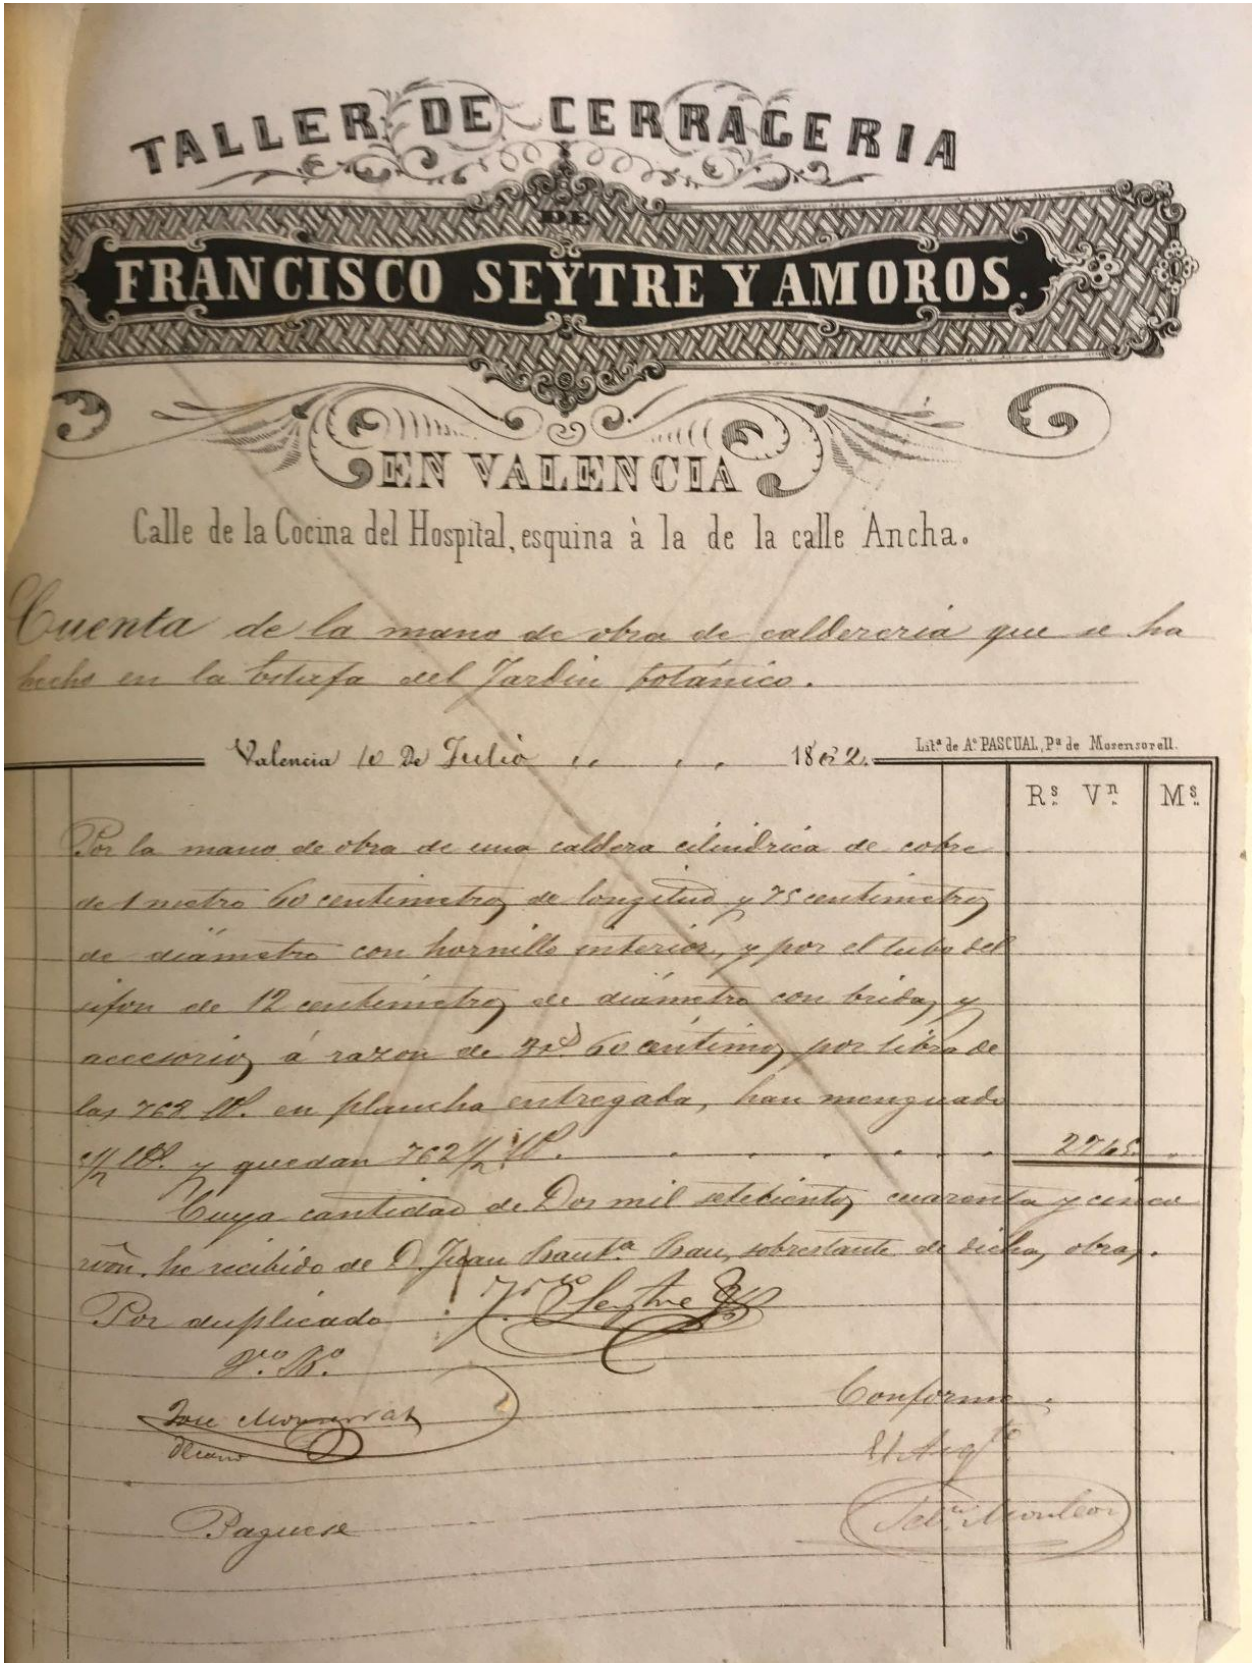 TALLER DE CERRAGERIA
DE
FRANCISCO SEYTRE Y AMOROS.
EN VALENCIA
Calle de la Cocina del Hospital, esquina à la de la calle Ancha.
Cuenta de la mano de obra de caldereria que se ha
hecho en la Estufa del Jardin botánico.
Valencia 10 de Julio 1862.
Litª de Aº PASCUAL, Pª de Mosensorell.
Rˢ Vⁿ Mˢ
Por la mano de obra de una caldera cilindrica de cobre
de 1 metro 60 centimetros de longitud y 75 centimetros
de diámetro con hornillo interior, y por el tubo del
sifon de 12 centimetros de diámetro con bridas y
accesorios á razon de 60 centimos por libra de
las 768 en plancha entregada, han menguado
y quedan 762 1/2 2745
Cuya cantidad de Dos mil setecientos cuarenta y cinco
rvon. he recibido de D. Juan Bautª Bau, sobrestante de dichas obras.
Por duplicado Seytre
Vº Bº
Jose Monserrat
Decano
Conforme
El Arqtº
Sebⁿ Monleon
Paguese